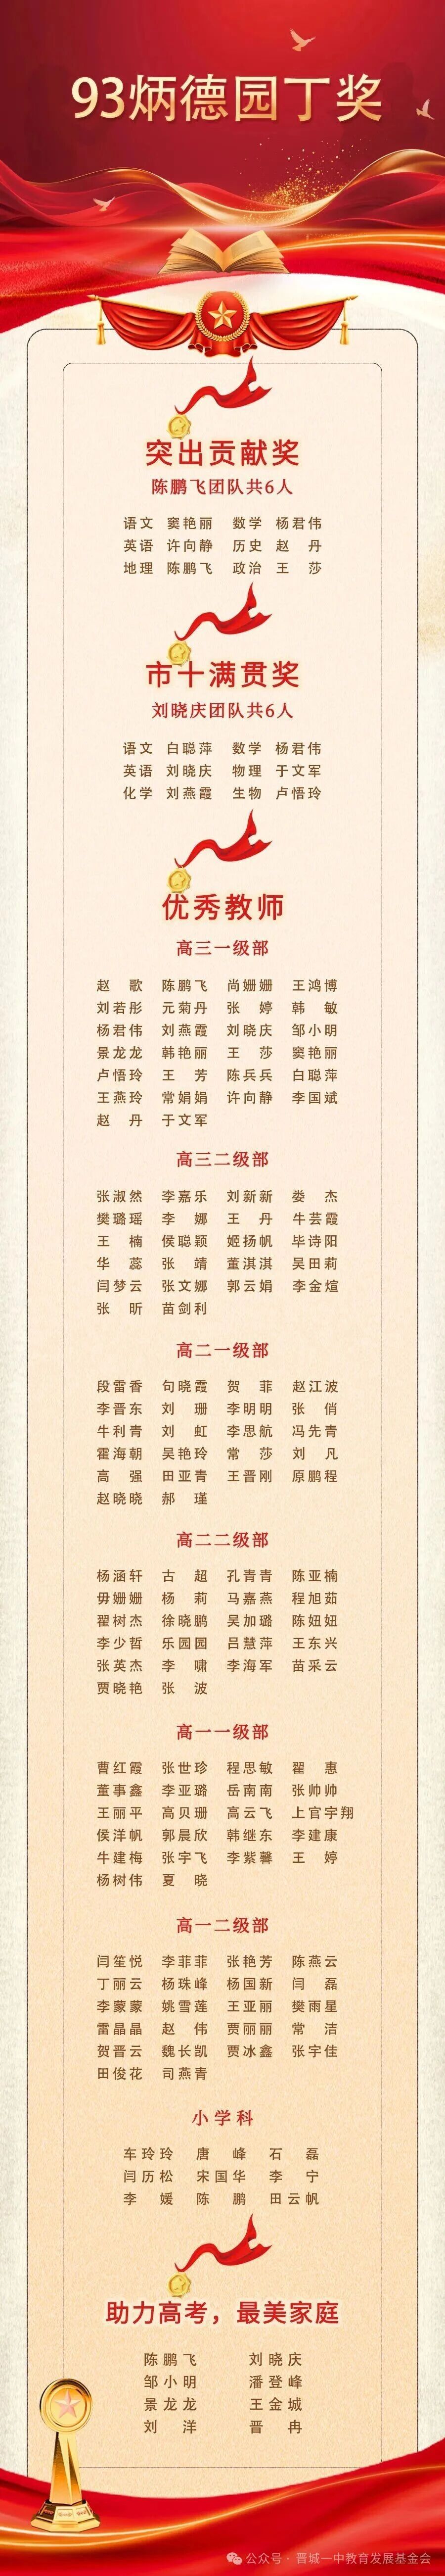 93炳德园丁奖
突出贡献奖
陈鹏飞团队共6人
语文 窦艳丽 数学 杨君伟
英语 许向静 历史 赵丹
地理 陈鹏飞 政治 王莎
市十满贯奖
刘晓庆团队共6人
语文 白聪萍 数学 杨君伟
英语 刘晓庆 物理 于文军
化学 刘燕霞 生物 卢悟玲
优秀教师
高三一级部
赵歌 陈鹏飞 尚姗姗 王鸿博
刘若彤 元菊丹 张婷 韩敏
杨君伟 刘燕霞 刘晓庆 邹小明
景龙龙 韩艳丽 王莎 窦艳丽
卢悟玲 王芳 陈兵兵 白聪萍
王燕玲 常娟娟 许向静 李国斌
赵丹 于文军
高三二级部
张淑然 李嘉乐 刘新新 娄杰
樊璐瑶 李娜 王丹 牛芸霞
王楠 侯聪颖 姬扬帆 毕诗阳
华蕊 张靖 董淇淇 吴田莉
闫梦云 张文娜 郭云娟 李金煊
张昕 苗剑利
高二一级部
段雷香 句晓霞 贺菲 赵江波
李晋东 刘珊 李明明 张俏
牛利青 刘虹 李思航 冯先青
霍海朝 吴艳玲 常莎 刘凡
高强 田亚青 王晋刚 原鹏程
赵晓晓 郝瑾
高二二级部
杨涵轩 古超 孔青青 陈亚楠
毋姗姗 杨莉 马嘉燕 程旭茹
翟树杰 徐晓鹏 吴加璐 陈妞妞
李少哲 乐园园 吕慧萍 王东兴
张英杰 李啸 李海军 苗采云
贾晓艳 张波
高一一级部
曹红霞 张世珍 程思敏 翟惠
董事鑫 李亚璐 岳南南 张帅帅
王丽平 高贝珊 高云飞 上官宇翔
侯洋帆 郭晨欣 韩继东 李建康
牛建梅 张宇飞 李紫馨 王婷
杨树伟 夏晓
高一二级部
闫笙悦 李菲菲 张艳芳 陈燕云
丁丽云 杨珠峰 杨国新 闫磊
李蒙蒙 姚雪莲 王亚丽 樊雨星
雷晶晶 赵伟 贾丽丽 常洁
贺晋云 魏长凯 贾冰鑫 张宇佳
田俊花 司燕青
小学科
车玲玲 唐峰 石磊
闫历松 宋国华 李宁
李媛 陈鹏 田云帆
助力高考，最美家庭
陈鹏飞 刘晓庆
邹小明 潘登峰
景龙龙 王金城
刘洋 晋冉
公众号 · 晋城一中教育发展基金会